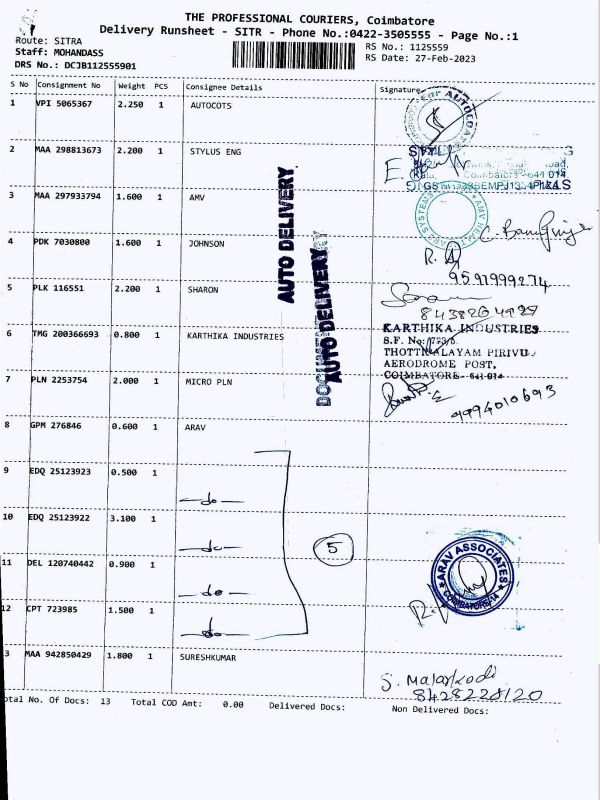 THE PROFESSIONAL COURIERS, Coimbatore
Delivery Runsheet - SITR - Phone No.:0422-3505555 - Page No.:1
Route: SITRA
RS No.: 1125559
Staff: MOHANDASS
RS Date: 27-Feb-2023
DRS No.: DCJB112555901
S No Consignment No Weight PCS Consignee Details Signature
1 VPI 5065367 2.250 1 AUTOCOTS
2 MAA 298813673 2.200 1 STYLUS ENG
3 MAA 297933794 1.600 1 AMV
4 PDK 7030800 1.600 1 JOHNSON
9597999274
5 PLK 116551 2.200 1 SHARON
6 TMG 200366693 0.800 1 KARTHIKA INDUSTRIES
KARTHIKA INDUSTRIES
THOTTIPALAYAM PIRIVU,
AERODROME POST,
COIMBATORE - 641 014
7 PLN 2253754 2.000 1 MICRO PLN
9994010693
8 GPM 276846 0.600 1 ARAV
9 EDQ 25123923 0.500 1
-do-
10 EDQ 25123922 3.100 1
-do-
11 DEL 120740442 0.900 1
-do-
12 CPT 723985 1.500 1
-do-
5
ARAV ASSOCIATES
COIMBATORE-14
3 MAA 942850429 1.800 1 SURESHKUMAR
S. Malarkodi
8428228120
otal No. Of Docs: 13 Total COD Amt: 0.00 Delivered Docs: Non Delivered Docs:
AUTO DELIVERY
AUTO DELIVERY